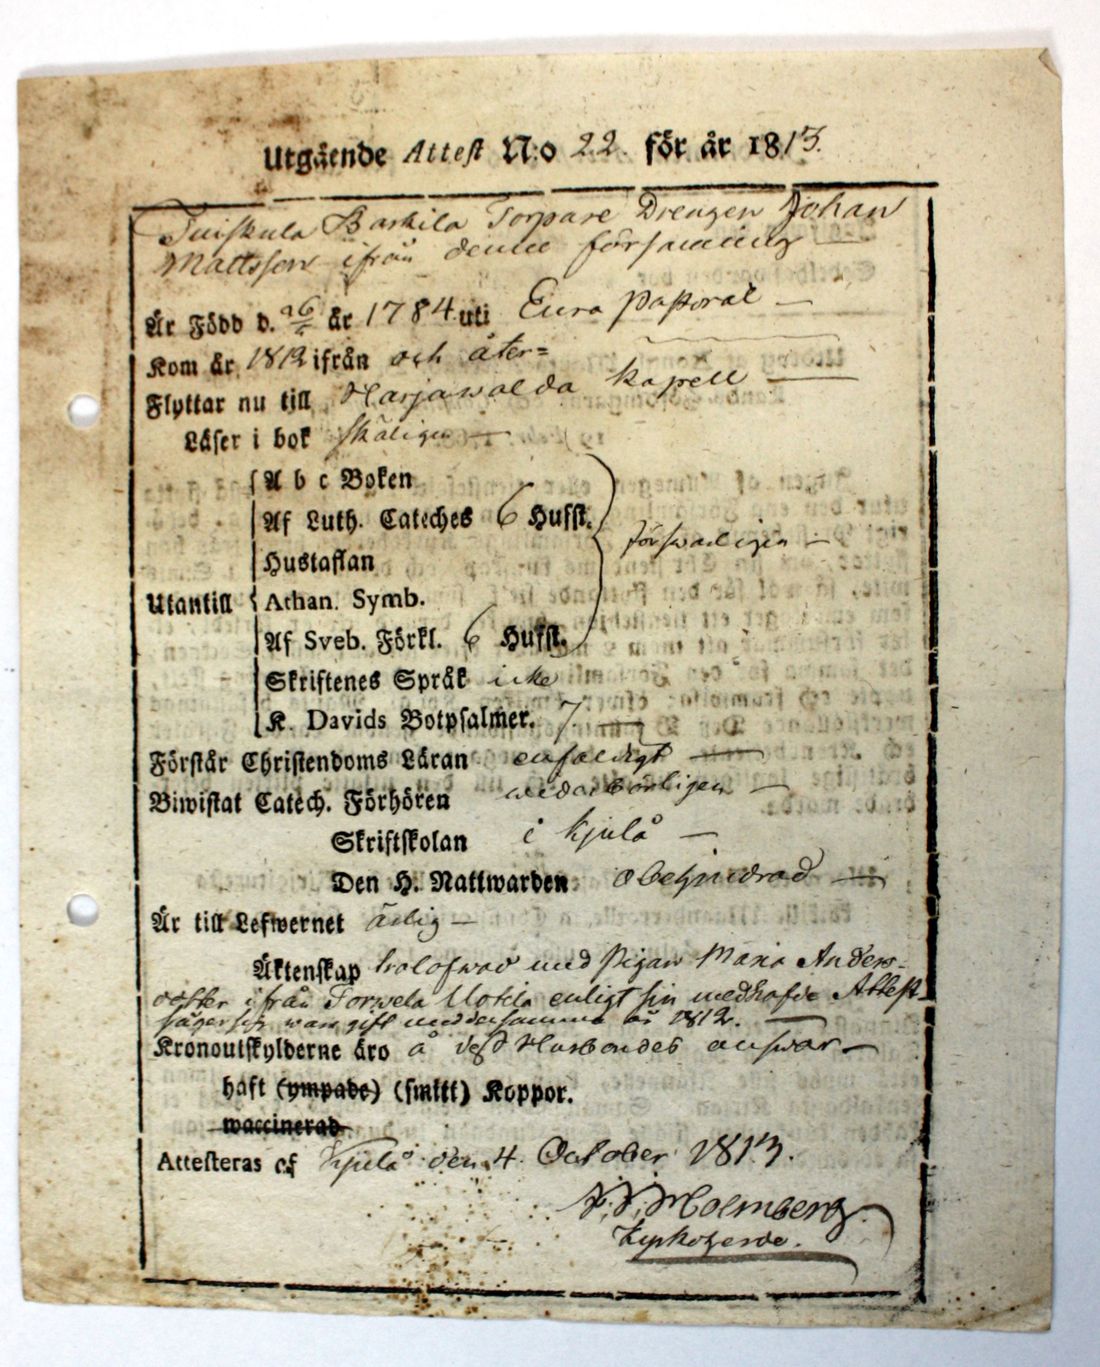 Utgående Attest N:o 22. för år 1813.
Barkila Torpare Drengen Johan
Mattsson ifrån denne församling
Är Född d. 26 år 1784 uti Eura pastorat
Kom år 1812 ifrån och åter=
Flyttar nu till Harjawalda kapell
Läser i bok skäligen
A b c Boken
Af Luth. Cateches 6 Hufst.
försvarligen
Hustaflan
Utantill Athan. Symb.
Af Sveb. Förkl. 6 Hufst.
Skriftenes Språk icke
K. Davids Botpsalmer. 7.
Förstår Christendoms Läran enfaldigt
Biwistat Catech. Förhören wederbörligen
Skriftskolan i Kjulå
Den H. Nattwarden obehindrad
Är till Lefwernet ärlig
Äktenskap trolofwad med Pigan Maria Anders-
dotter ifrån Torwela enligt sin medhafde Attest
säger sig wara gift med densamma år 1812.
Kronoutskylderne äro å dess Husbondes answar
haft (ympade) (smitt) Koppor.
waccinerad
Attesteras af Kjulo den 4 October 1813.
Holmberg
Kyrkoherde.